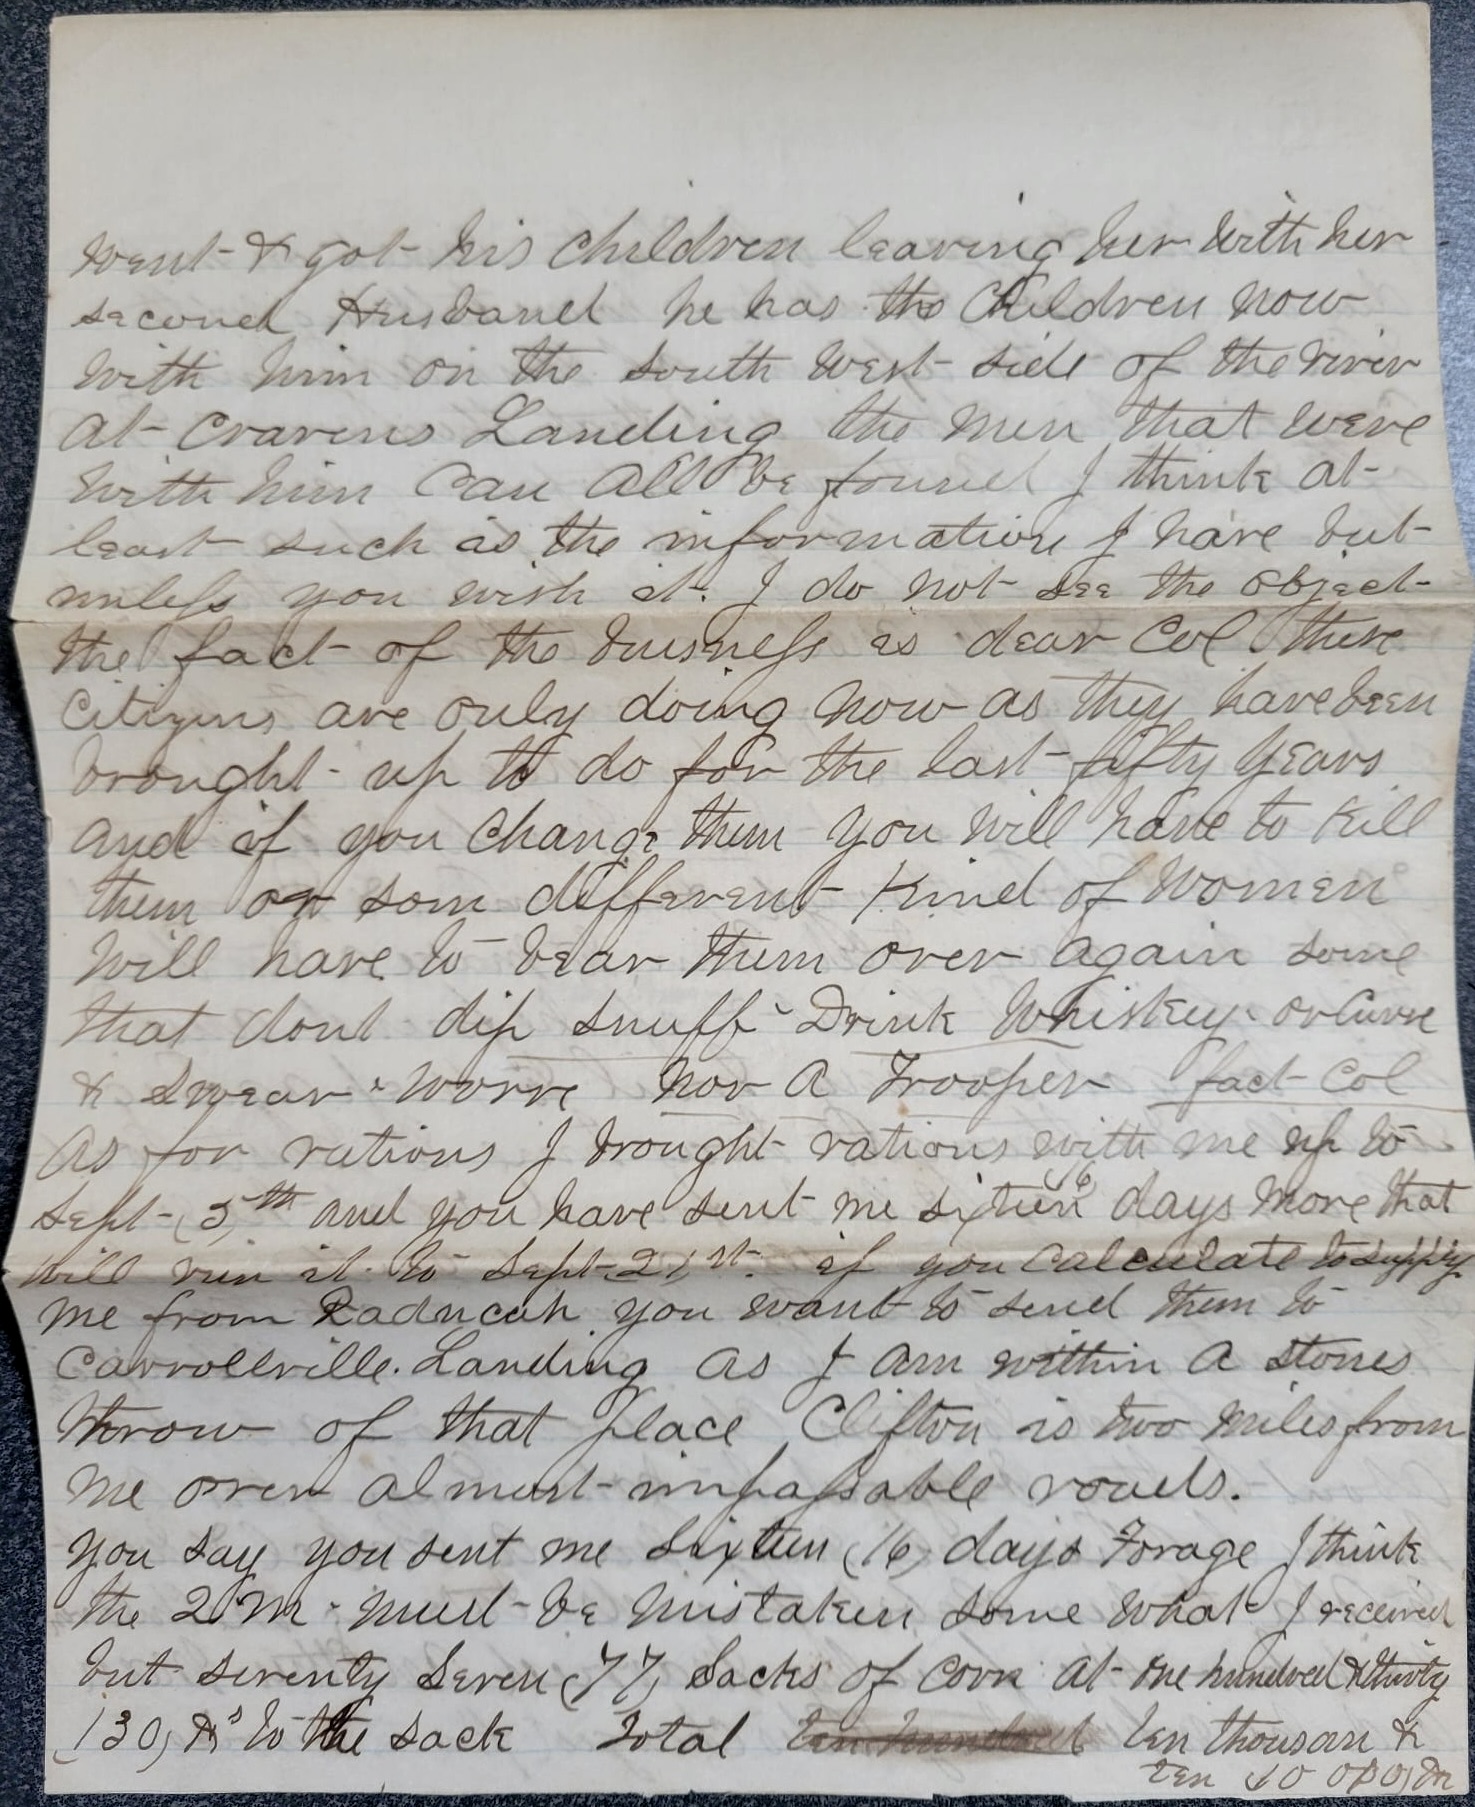 went & got his children leaving her with her
second Husband he has the Children now
with him on the south west side of the river
at Cravens Landing the men that were
with him Can All be found I think at
least such is the information I have but
unless you wish it. I do not see the object
the fact of the buisness is dear Col these
Citizens are only doing now as they have been
brought up to do for the last fifty years
and if you change them you will have to kill
them or som different Kind of Women
will have to bear them over again some
that dont dip snuff Drink Whiskey or Curse
& Swear worse nor A Trooper fact Col
As for rations I brought rations with me up to
Sept (5,th and you have sent me sixteen (16) days more that
will run it to Sept 21st. if you Calculate to supply
me from Paducah you want to send them to
Carrollville. Landing as I am within A stones
throw of that place Clifton is two miles from
me over almost impassable roads.
You say you sent me Sixteen (16) days Forage I think
the 2 M. must be mistaken some what I received
but seventy Seven (77) Sacks of Corn at one hundred & thirty
(130) to the sack Total ten thousan &
ten